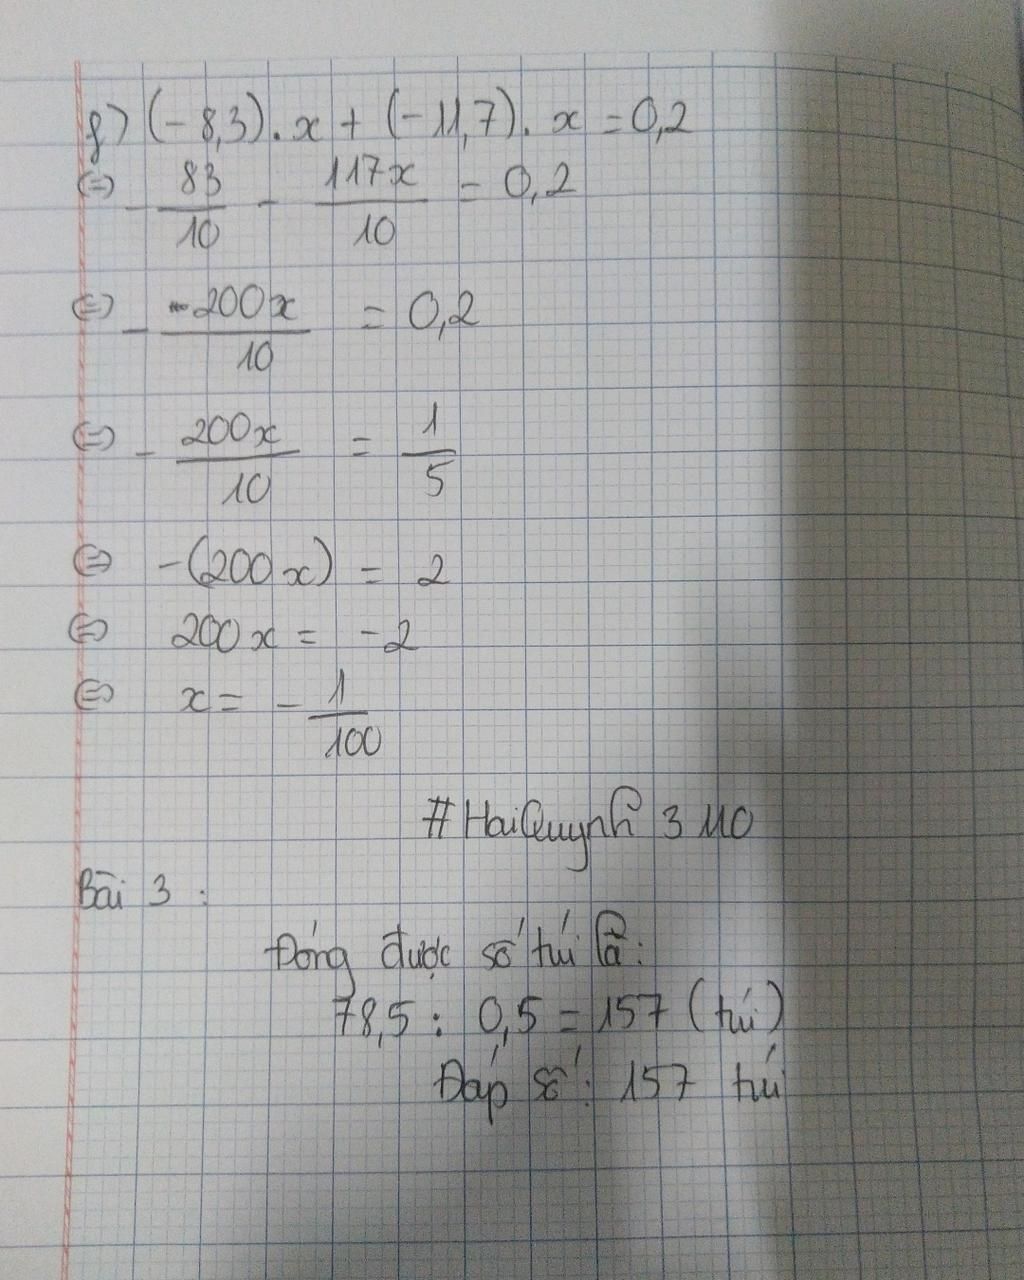 g) (-8,3).x + (-11,7).x = 0,2
⇔ - 83/10 - 117x/10 = 0,2
⇔ - -200x/10 = 0,2
⇔ - 200x/10 = 1/5
⇔ -(200x) = 2
⇔ 200x = -2
⇔ x = - 1/100
#HaiQuynh 3 MO
Bài 3 :
Đóng được số túi là:
78,5 : 0,5 = 157 (túi)
Đáp số : 157 túi